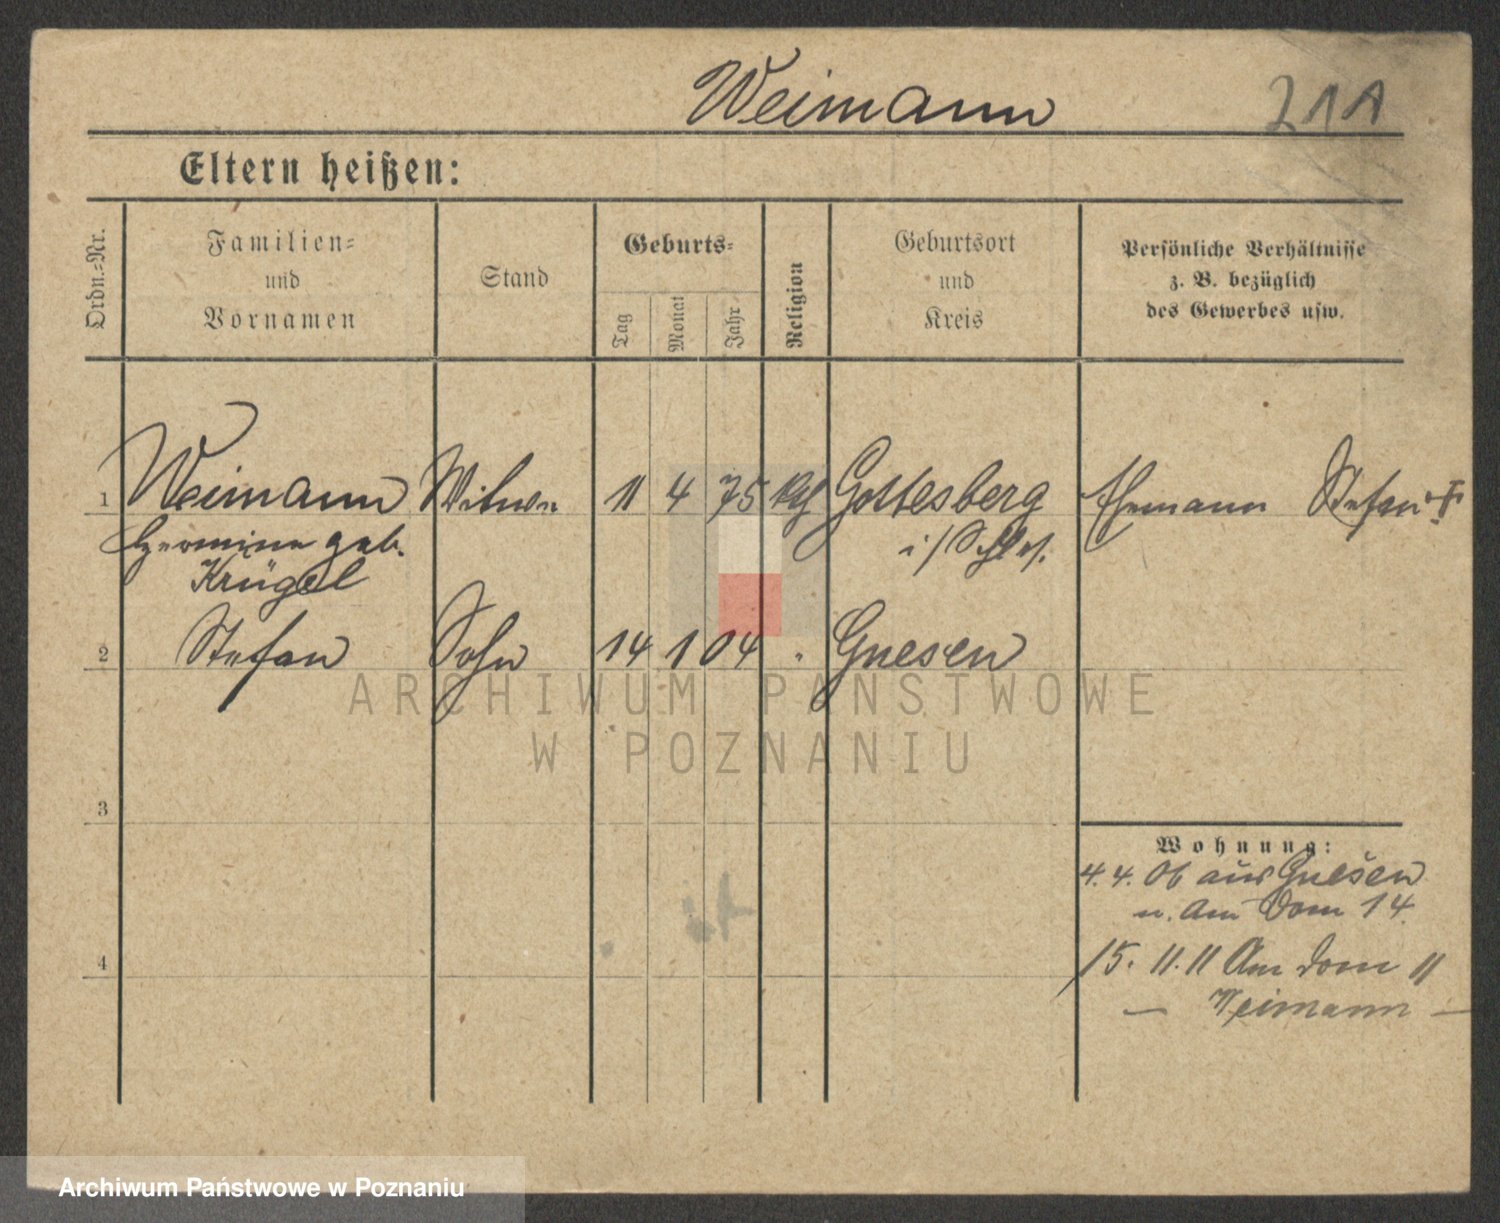 Weimann 211
Eltern heißen:
Ordn.=Nr.
Familien=
und
Vornamen
Stand
Geburts=
Tag
Monat
Jahr
Religion
Geburtsort
und
Kreis
Persönliche Verhältnisse
z. B. bezüglich
des Gewerbes usw.
1 Weimann Witwe 11 4 75 kth Gottesberg Ehemann Stefan †
Hermine geb. i/Schles.
Krügel
2 Stefan Sohn 14 1 04 " Gnesen
3
4
Wohnung:
4. 4. 06 aus Gnesen
n. Am Dom 14
15. 11. 11 Am Dom 11
— Weimann —
ARCHIWUM PAŃSTWOWE
W POZNANIU
Archiwum Państwowe w Poznaniu